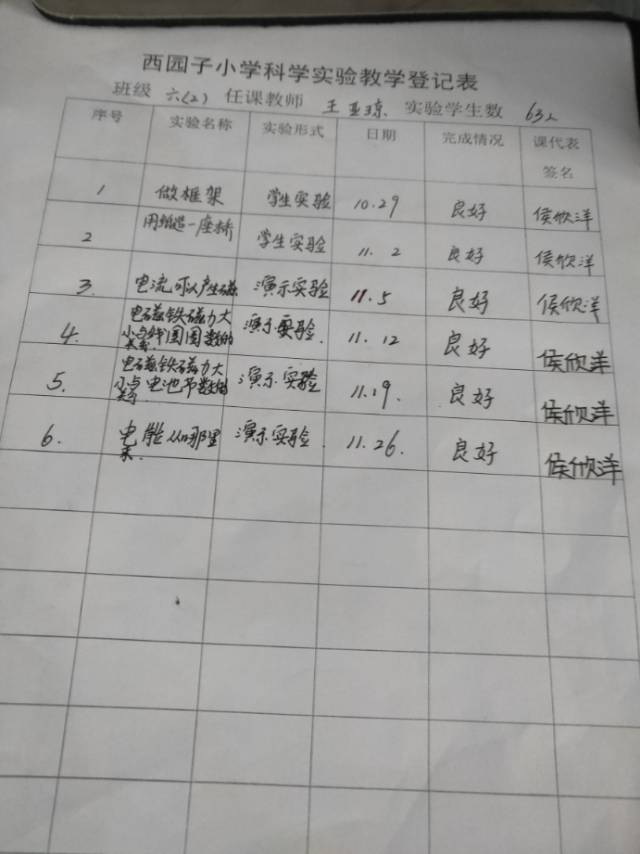 西园子小学科学实验教学登记表
班级 六(2) 任课教师 王亚琼 实验学生数 63人
序号 实验名称 实验形式 日期 完成情况 课代表签名
1 做框架 学生实验 10.29 良好 侯欣洋
2 用纸造一座桥 学生实验 11.2 良好 侯欣洋
3. 电流可以产生磁 演示实验 11.5 良好 侯欣洋
4. 电磁铁磁力大小与线圈圈数的关系. 演示实验. 11.12 良好 侯欣洋
5. 电磁铁磁力大小与电池节数的关系 演示实验 11.19. 良好 侯欣洋
6. 电能从哪里来. 演示实验. 11.26. 良好 侯欣洋